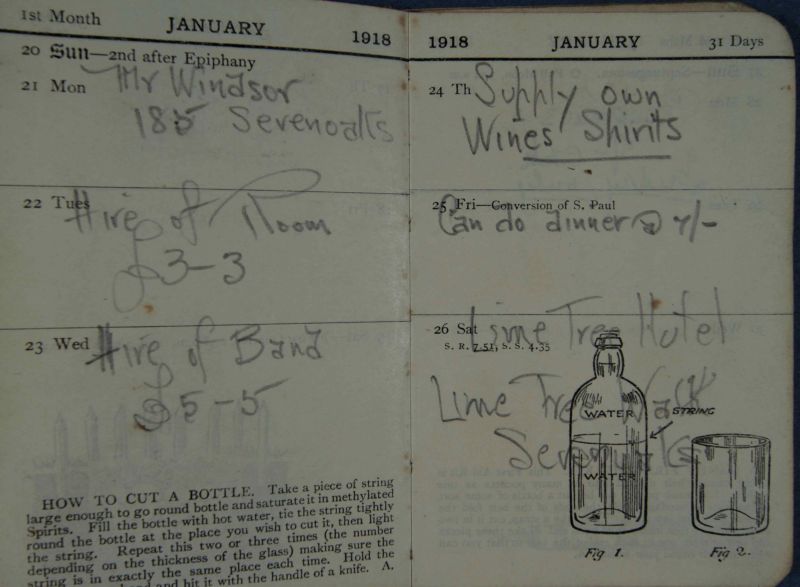 1st Month JANUARY 1918
20 Sun—2nd after Epiphany
21 Mon Mr Windsor
185 Sevenoaks
22 Tues Hire of Room
£3-3
23 Wed Hire of Band
£5-5
HOW TO CUT A BOTTLE. Take a piece of string
large enough to go round bottle and saturate it in methylated
Spirits. Fill the bottle with hot water, tie the string tightly
round the bottle at the place you wish to cut it, then light
the string. Repeat this two or three times (the number
depending on the thickness of the glass) making sure the
string is in exactly the same place each time. Hold the
and hit it with the handle of a knife. A.
1918 JANUARY 31 Days
24 Th Supply own
Wines Spirits
25 Fri—Conversion of S. Paul
Can do dinner @ 7/-
26 Sat Lime Tree Hotel
S. R. 7.51, S. S. 4.35
Lime Tree Walk
Sevenoaks
WATER
STRING
WATER
Fig 1. Fig 2.